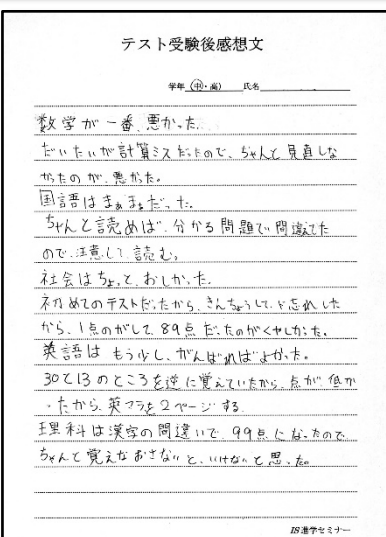 テスト受験後感想文
学年 (中・高) 氏名
数学が一番、悪かった。
だいたいが計算ミスだったので、ちゃんと見直しな
かったのが、悪かった。
国語はまぁまぁだった。
ちゃんと読めば、分かる問題で間違てた
ので、注意して読む。
社会はちょっと、おしかった。
初めてのテストだったから、きんちょうして、ド忘れした
から、1点のがして、89点だったのがくやしかった。
英語はもう少し、がんばればよかった。
30と13のところを逆に覚えていたから、点が低か
ったから、英フラを2ページする。
理科は漢字の間違いで、99点になったので
ちゃんと覚えなおさないと、いけないと思った。
IS進学セミナー